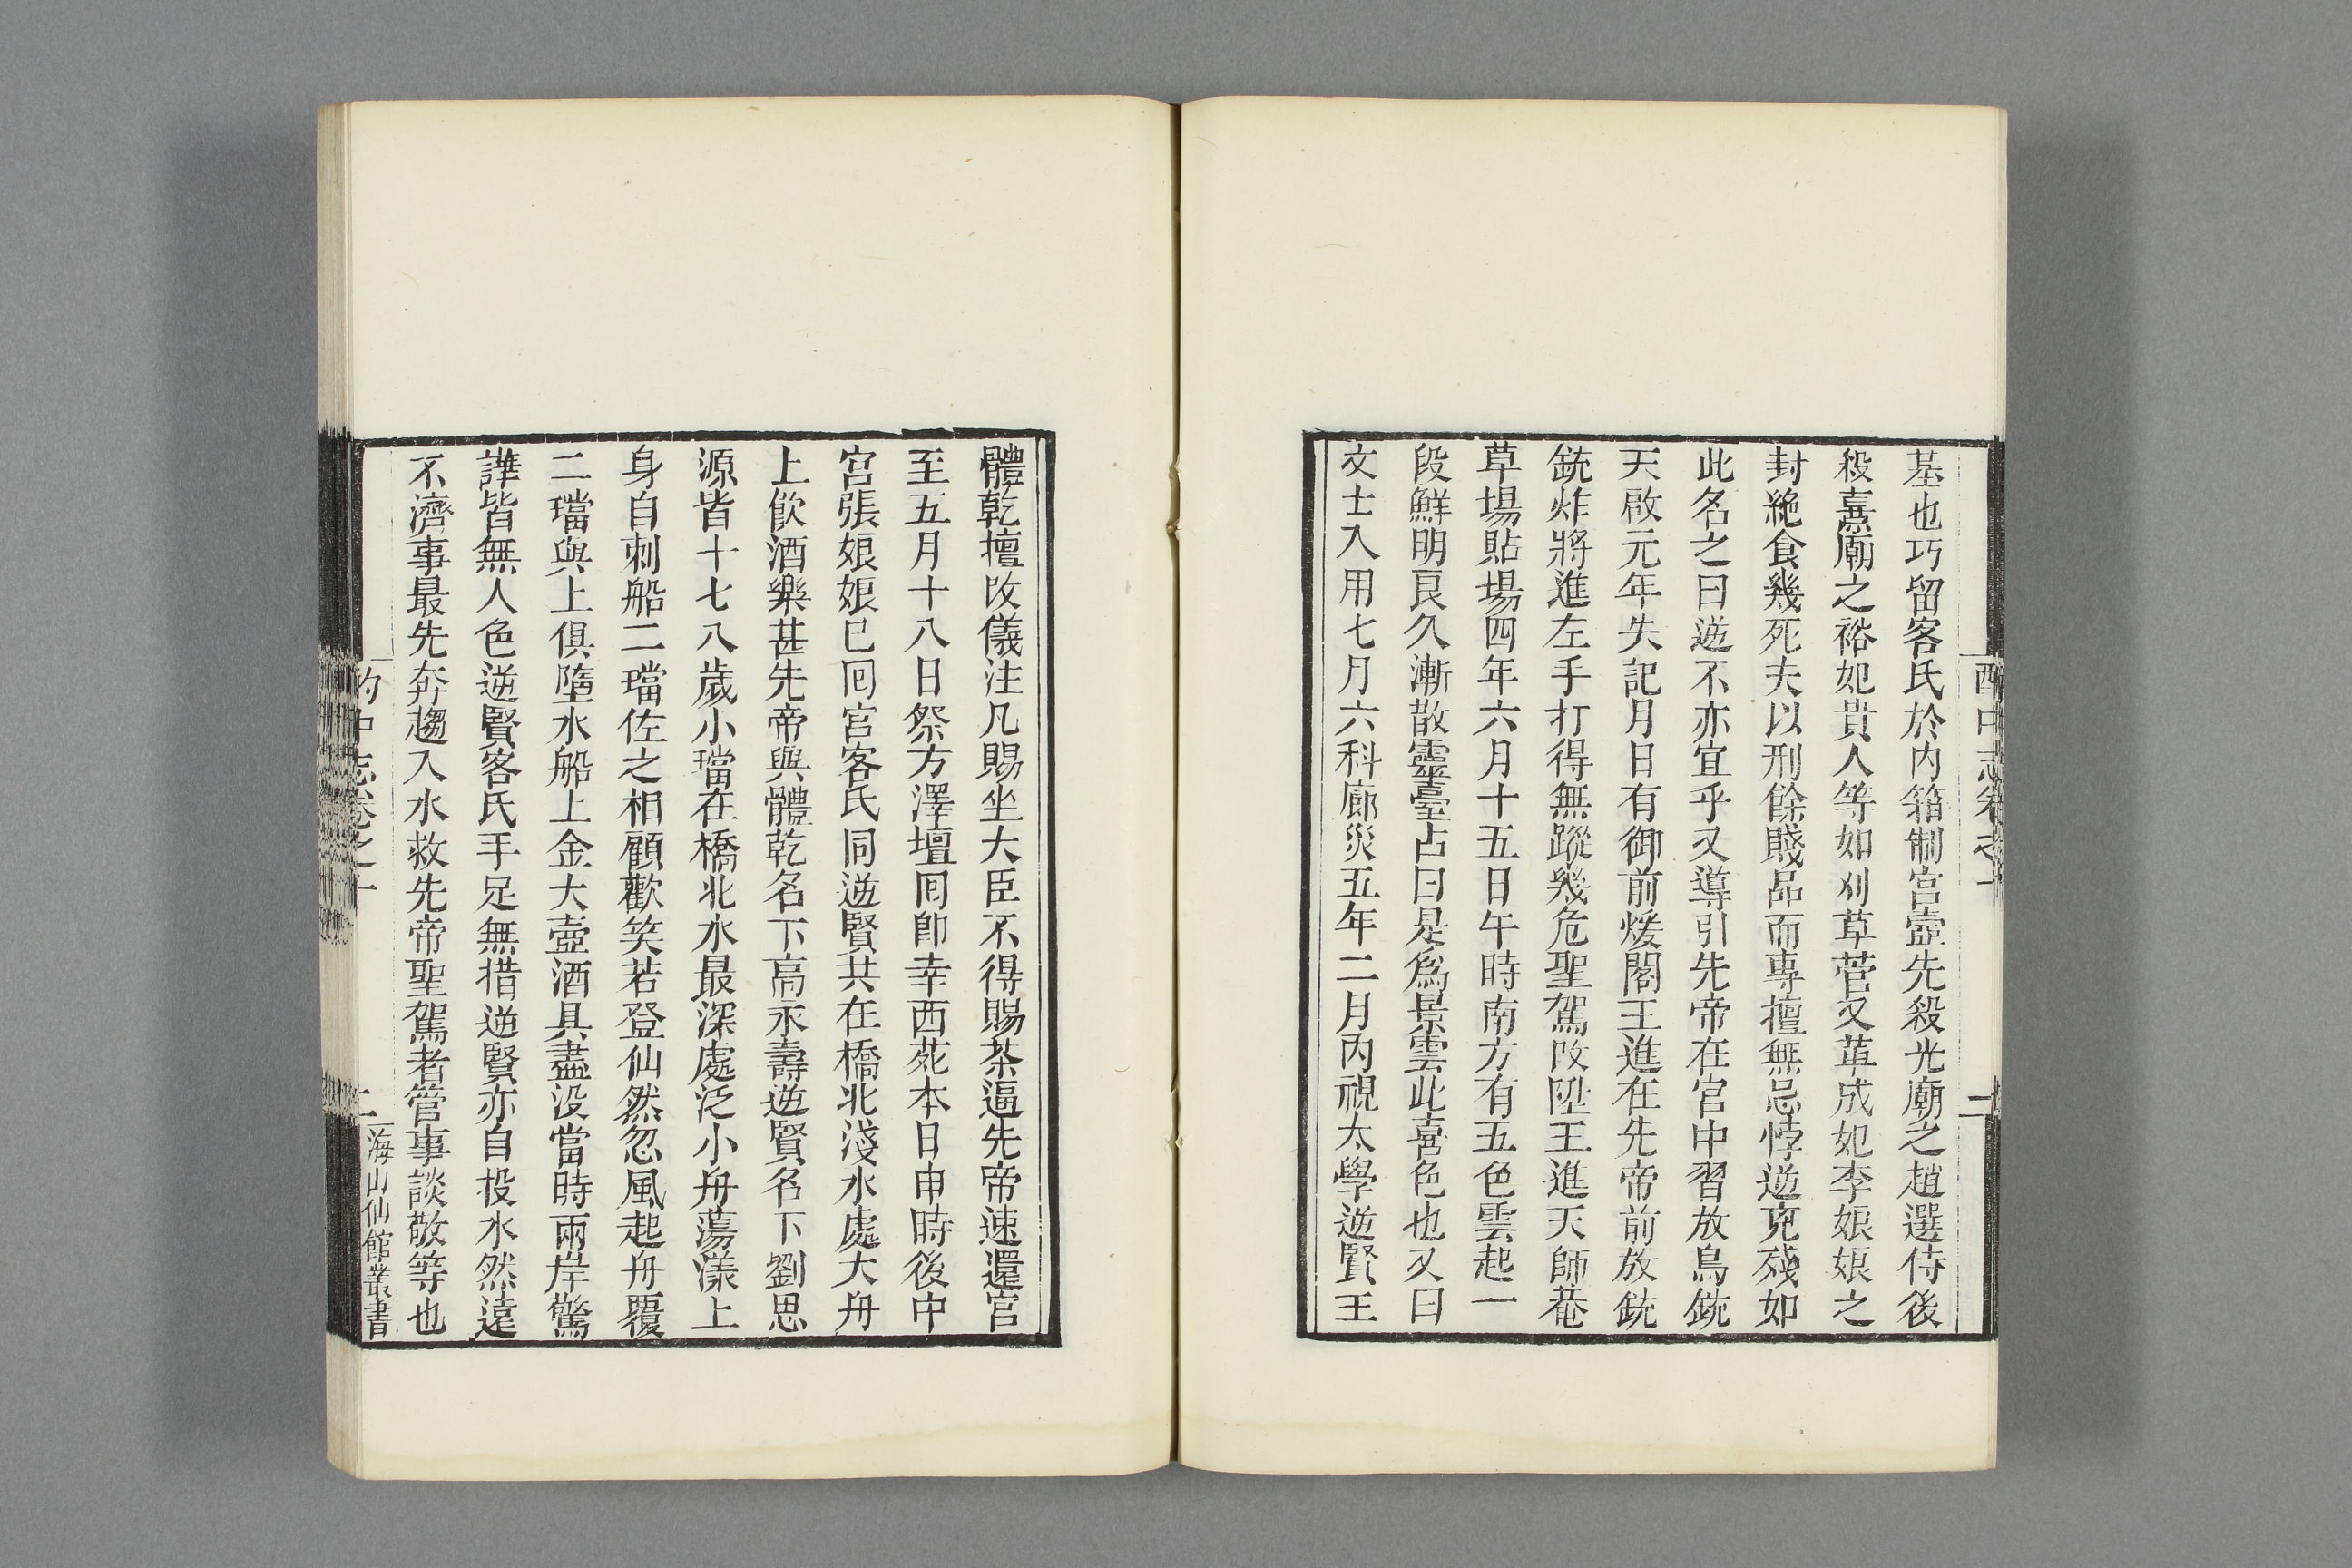 酌中志卷之十
二
基也巧留客氏於內箱制宮壼先殺光廟之趙選侍後
殺熹廟之裕妃貴人等如刈草菅又革成妃李娘娘之
封絶食幾死夫以刑餘賤品而專擅無忌悖逆兇殘如
此名之曰逆不亦宜乎又導引先帝在宮中習放鳥銃
天啟元年失記月日有御前煖閣王進在先帝前放銃
銃炸將進左手打得無蹤幾危聖駕改陞王進天師菴
草場貼場四年六月十五日午時南方有五色雲起一
段鮮明良久漸散靈臺占曰是爲景雲此喜色也又曰
文士入用七月六科廊災五年二月內視太學逆賢王
體乾擅改儀注凡賜坐大臣不得賜茶逼先帝速還宮
至五月十八日祭方澤壇囘卽幸西苑本日申時後中
宮張娘娘已囘宮客氏同逆賢共在橋北淺水處大舟
上飲酒樂甚先帝與體乾名下高永壽逆賢名下劉思
源皆十七八歲小璫在橋北水最深處泛小舟蕩漾上
身自刺船二璫佐之相顧歡笑若登仙然忽風起舟覆
二璫與上俱墮水船上金大壺酒具盡沒當時兩岸驚
譁皆無人色逆賢客氏手足無措逆賢亦自投水然遠
不濟事最先奔趨入水救先帝聖駕者管事談敬等也
酌中志卷之十
二
海山仙館叢書